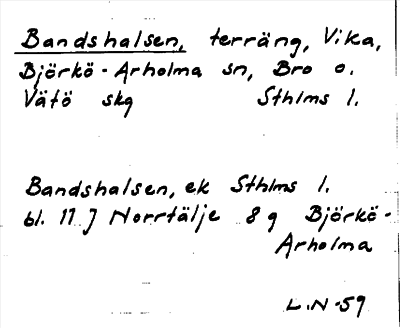 Bandshalsen, terräng, Vika,
Björkö-Arholma sn, Bro o.
Vätö skg Sthlms l.
Bandshalsen, ek Sthlms l.
bl. 11 J Norrtälje 8 g Björkö-
Arholma
L.N-59